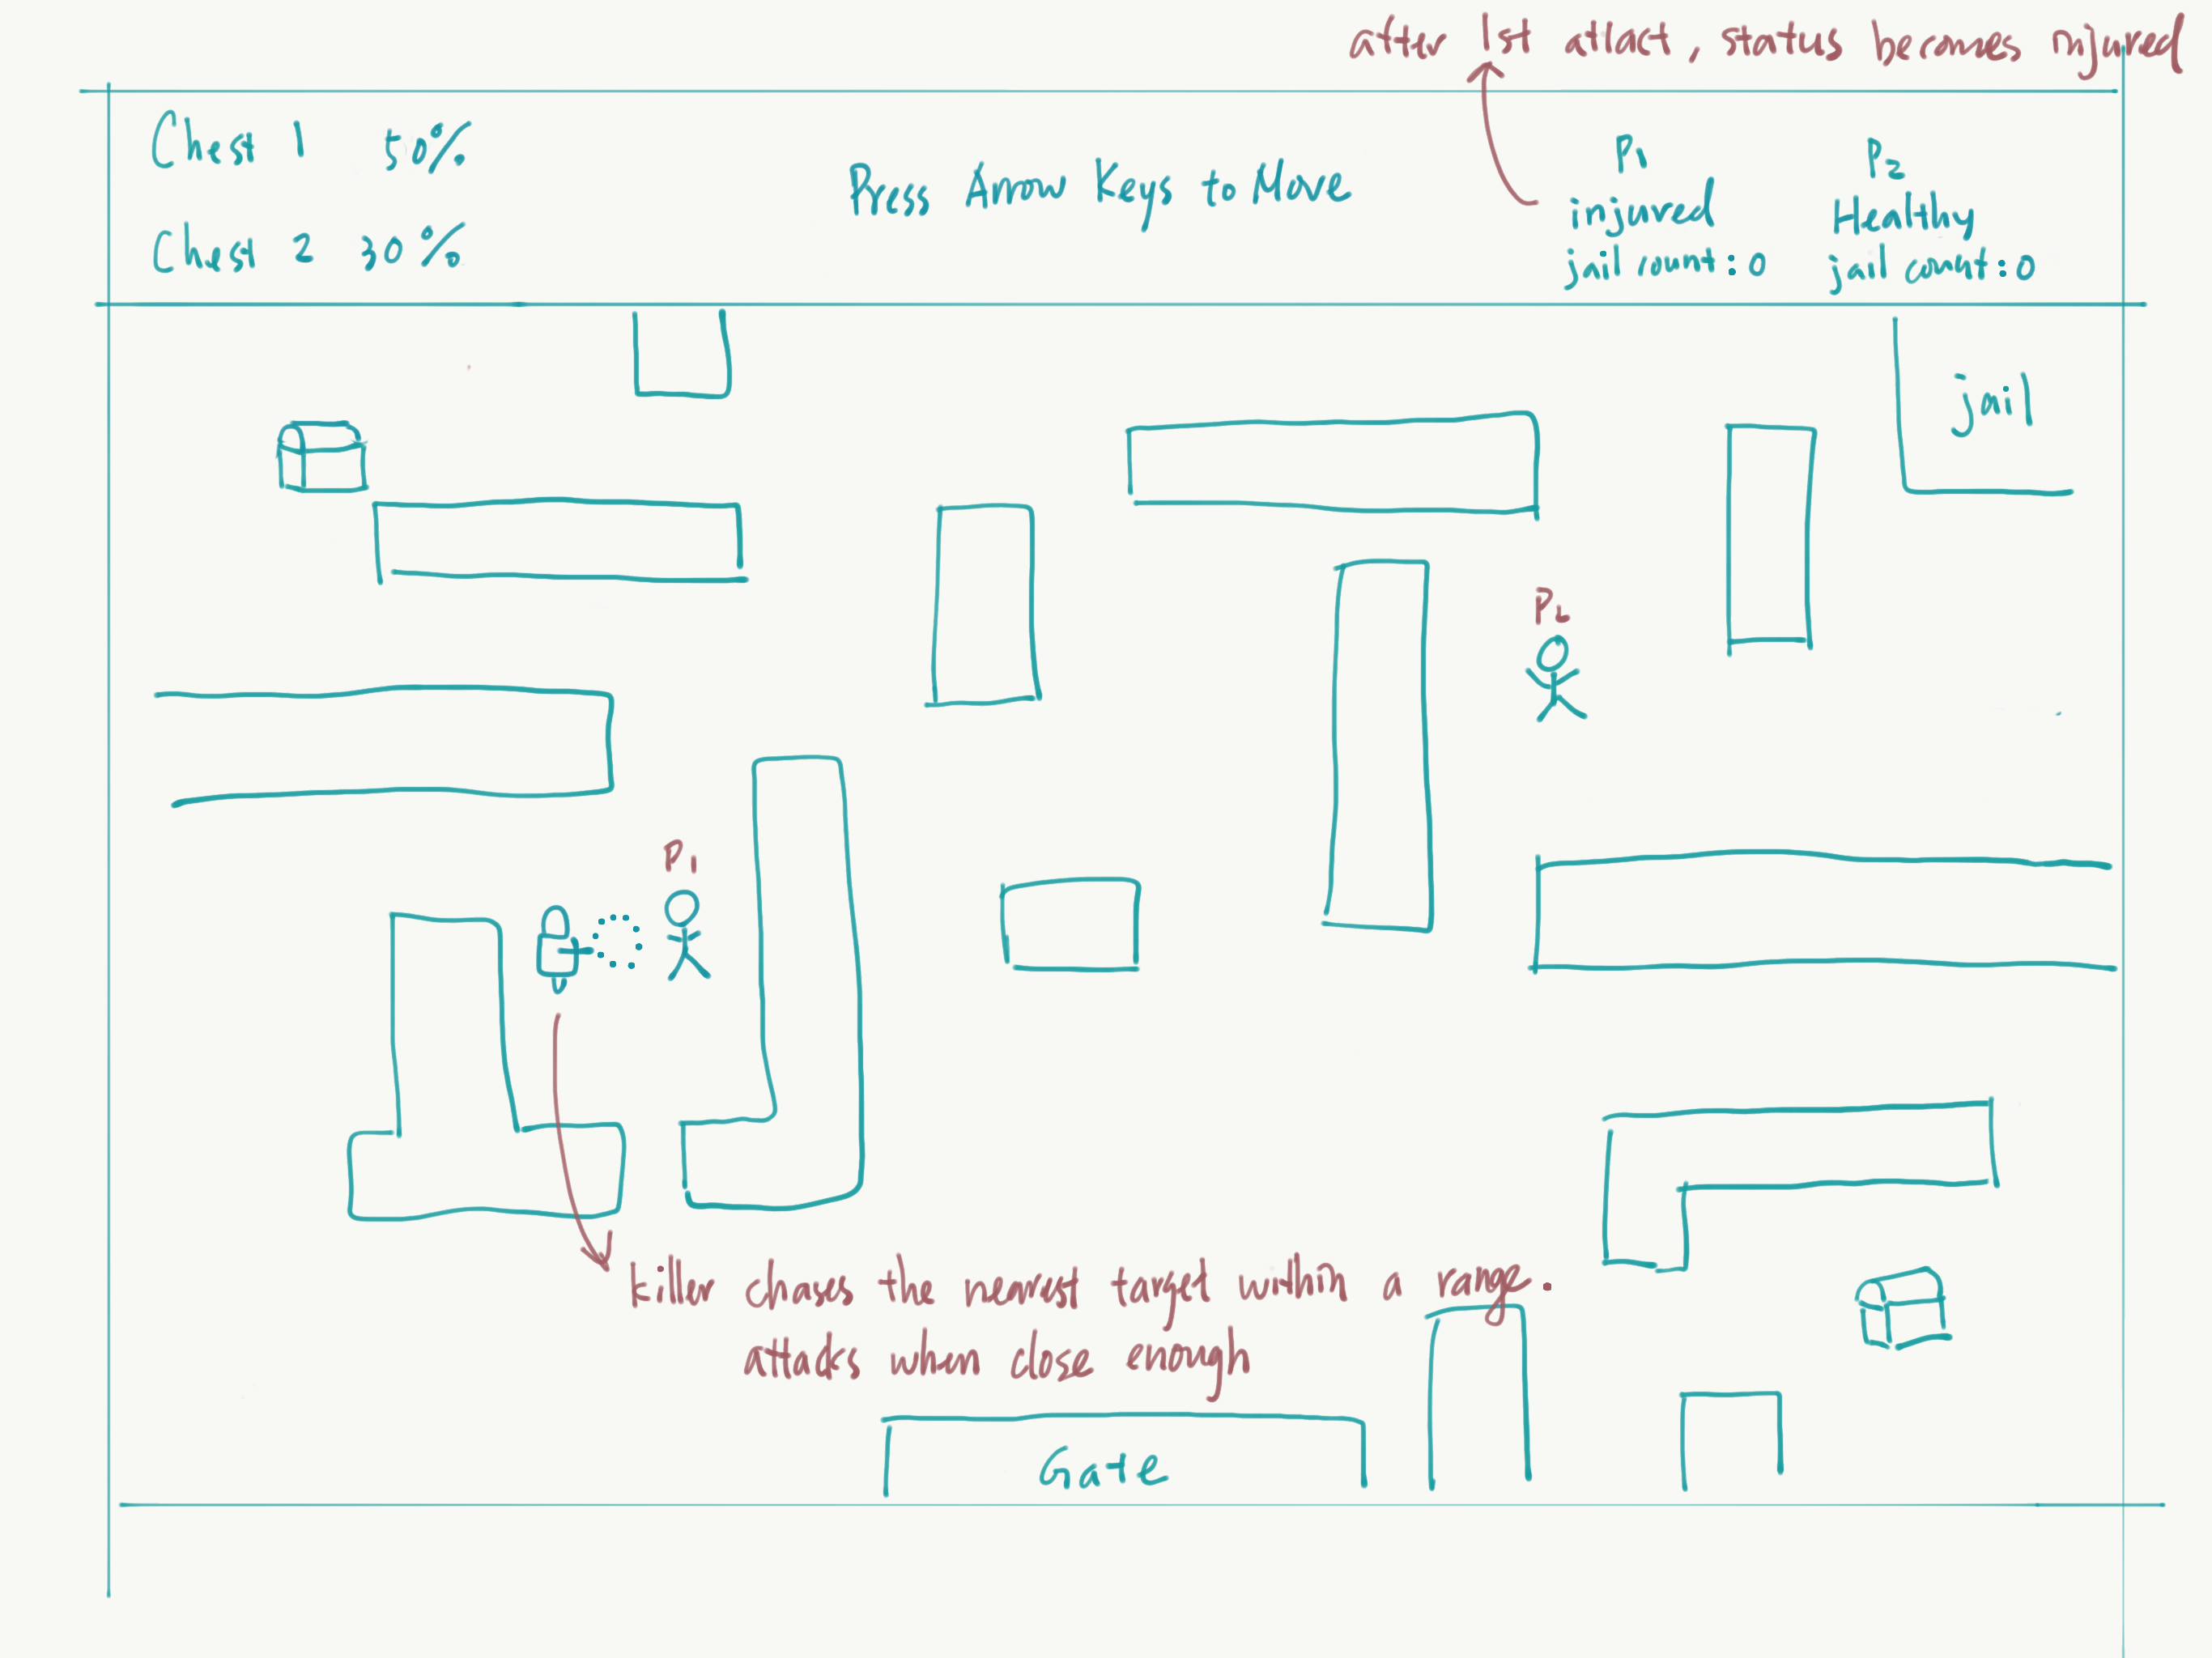 after 1st attact, status becomes injured
Chest 1 50%
Chest 2 30%
Press Arrow Keys to Move
P1
injured
jail count: 0
P2
Healthy
jail count: 0
jail
P2
P1
killer chases the nearest target within a range.
attacks when close enough
Gate